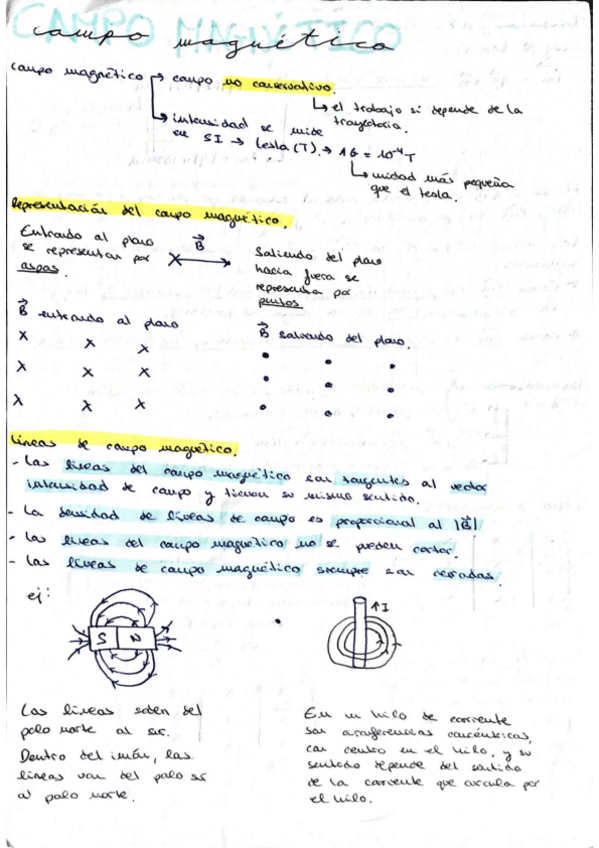 CAMPO MAGNÉTICO
campo magnético
campo magnético → campo no conservativo.
↳ el trabajo sí depende de la
trayectoria.
↳ intensidad se mide
en SI → tesla (T). → 1G = 10⁻⁴T
↳ unidad más pequeña
que el tesla.
Representación del campo magnético.
Entrando al plano
se representan por
aspas.
B⃗
X
Saliendo del plano
hacia fuera se
representa por
puntos
B⃗ entrando al plano
X X X
X X X
X X X
B⃗ saliendo del plano.
• • •
• • •
• • •
Líneas de campo magnético.
- Las líneas del campo magnético son tangentes al vector
intensidad de campo y tienen su mismo sentido.
- La densidad de líneas de campo es proporcional al |B⃗|
- Las líneas del campo magnético no se pueden cortar.
- Las líneas de campo magnético siempre son cerradas.
ej:
S N
↑I
Las líneas salen del
polo norte al sur.
Dentro del imán, las
líneas van del polo sur
al polo norte.
En un hilo de corriente
son circunferencias concéntricas,
con centro en el hilo, y su
sentido depende del sentido
de la corriente que circula por
el hilo.